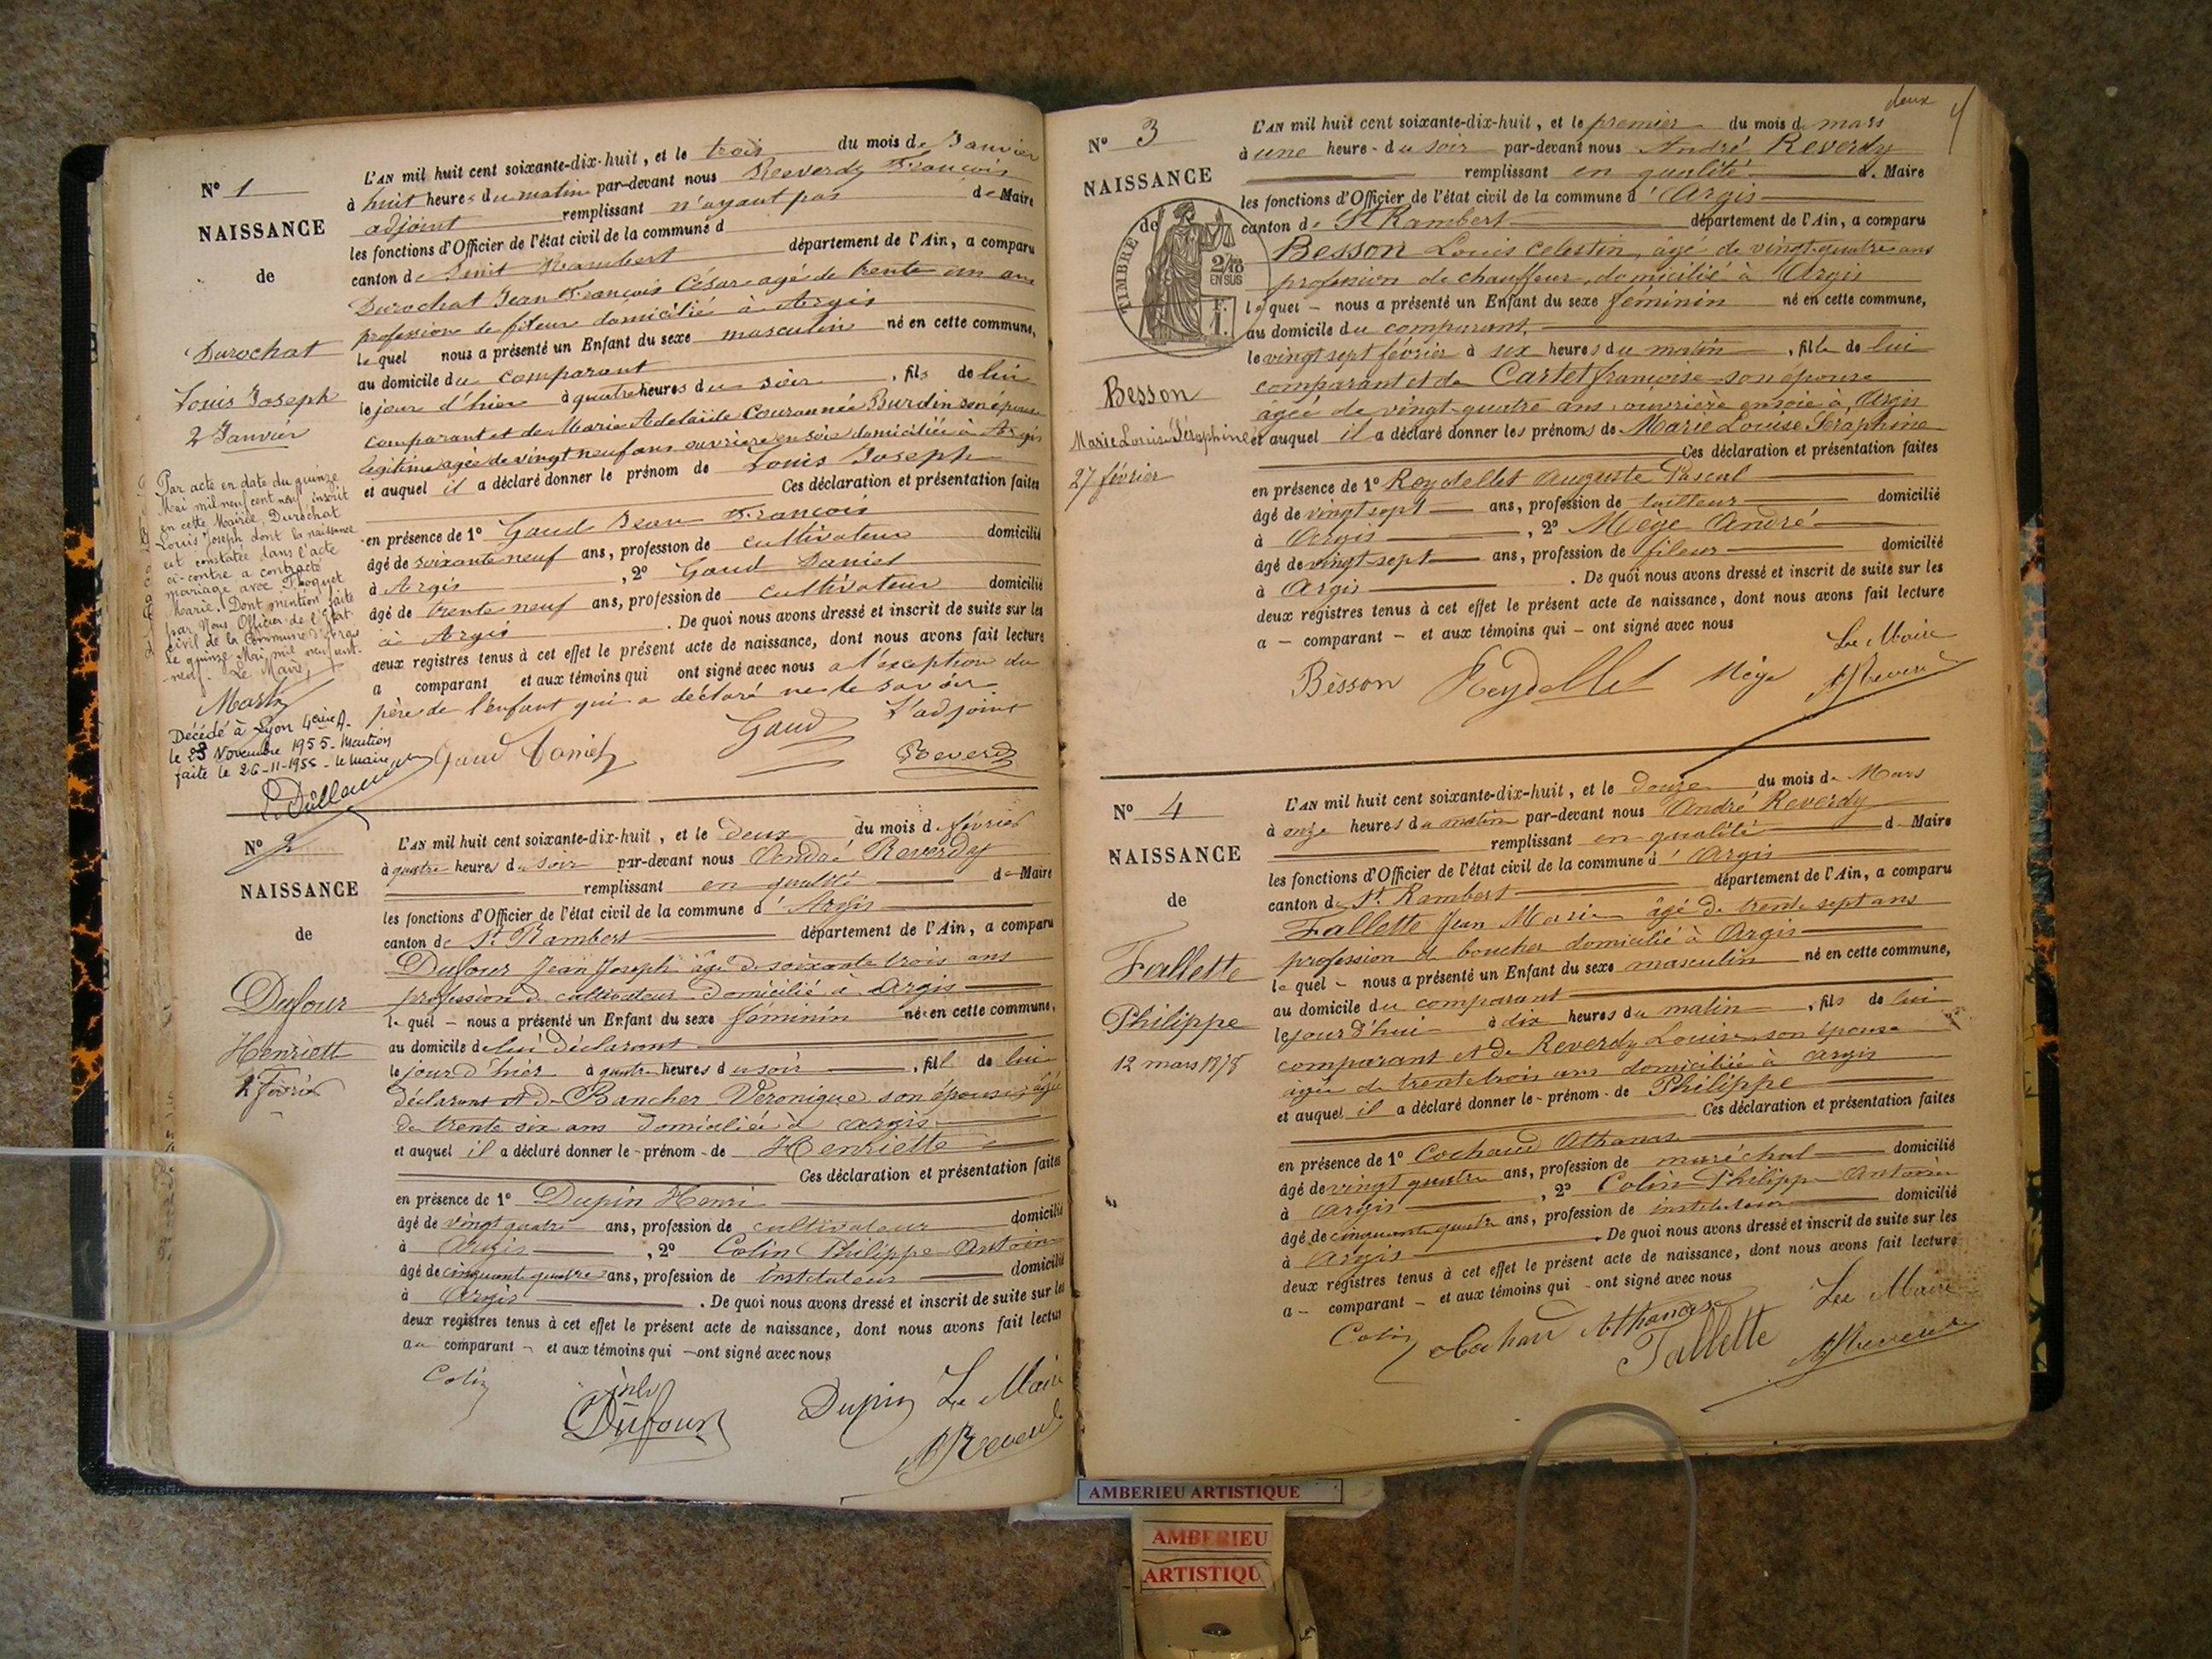 N° 1
NAISSANCE
de
Durochat
Louis Joseph
2 Janvier
Par acte en date du quinze
Mai mil neuf cent neuf inscrit
en cette Mairie, Durochat
Louis Joseph dont la naissance
est constatée dans l'acte
ci-contre a contracté
mariage avec
Marie. Dont mention faite
par Nous Officier de l'Etat
civil de la Commune d'Argis
Le quinze Mai mil neuf cent
neuf. Le Maire,
Décédé à Lyon 4eme A.
le 23 Novembre 1955 - Mention
faite le 26-11-1955 - le Maire
L'AN mil huit cent soixante-dix-huit, et le trois du mois de Janvier
à huit heures du matin par-devant nous Reverdy François
adjoint remplissant n'ayant pas de Maire
les fonctions d'Officier de l'état civil de la commune d
canton de Sint Rambert département de l'Ain, a comparu
Durochat Jean François César agé de trente un ans
profession de fileur domicilié à Argis
lequel nous a présenté un Enfant du sexe masculin né en cette commune,
au domicile du comparant
le jour d'hier à quatre heures du soir , fils de lui
comparant et de Marie Adelaïde Couronnée Burdin son épouse
légitime agée de vingt neuf ans ouvriere en soie domiciliée à Argis
et auquel il a déclaré donner le prénom de Louis Joseph
Ces déclaration et présentation faites
en présence de 1° Gaud Jean François
âgé de soixante neuf ans, profession de cultivateur domicilié
à Argis , 2° Gaud Daniel
âgé de trente neuf ans, profession de cultivateur domicilié
à Argis . De quoi nous avons dressé et inscrit de suite sur les
deux registres tenus à cet effet le présent acte de naissance, dont nous avons fait lecture
a comparant et aux témoins qui ont signé avec nous a l'exception du
père de l'enfant qui a déclaré ne le savoir
Gaud Daniel Gaud L'adjoint
Reverdy
N° 2
NAISSANCE
de
Dufour
Henriette
1 Février
L'AN mil huit cent soixante-dix-huit, et le deux du mois d février
à quatre heures du soir par-devant nous André Reverdy
remplissant en qualité de Maire
les fonctions d'Officier de l'état civil de la commune d' Argis
canton de St Rambert département de l'Ain, a comparu
Dufour Jean Joseph âgé de soixante trois ans
profession de cultivateur domicilié à Argis
lequel - nous a présenté un Enfant du sexe féminin né en cette commune,
au domicile de lui déclarant
le jour d'hier à quatre heures du soir , fill de lui
déclarant et de Bancher Véronique son épouse âgée
de trente six ans domiciliée à Argis
et auquel il a déclaré donner le - prénom - de Henriette
Ces déclaration et présentation faites
en présence de 1° Dupin Henri
âgé de vingt quatre ans, profession de cultivateur domicilié
à Argis , 2° Colin Philippe Antoine
âgé de cinquante quatre ans, profession de instituteur domicilié
à Argis . De quoi nous avons dressé et inscrit de suite sur les
deux registres tenus à cet effet le présent acte de naissance, dont nous avons fait lecture
au comparant - et aux témoins qui - ont signé avec nous
Colin Dufour Dupin Le Maire
deux
N° 3
NAISSANCE
de
TIMBRE
2/10
EN SUS
F.
1.
Besson
Marie Louise Séraphine
27 février
L'AN mil huit cent soixante-dix-huit, et le premier du mois d mars
à une heure - du soir par-devant nous André Reverdy
remplissant en qualité d. Maire
les fonctions d'Officier de l'état civil de la commune d' Argis
canton de St Rambert département de l'Ain, a comparu
Besson Louis Celestin, âgé de vingt-quatre ans
profession de chauffeur, domicilié à Argis
lequel - nous a présenté un Enfant du sexe féminin né en cette commune,
au domicile du comparant,
le vingt sept février à six heures du matin , fille de lui
comparant et de Cartet françoise son épouse
âgée de vingt-quatre ans, ouvrière en soie à Argis
et auquel il a déclaré donner les prénoms de Marie Louise Séraphine
Ces déclaration et présentation faites
en présence de 1° Reydellet Auguste Pascal
âgé de vingt sept ans, profession de tailleur domicilié
à Argis , 2° Mège André
âgé de vingt-sept ans, profession de fileur domicilié
à Argis . De quoi nous avons dressé et inscrit de suite sur les
deux registres tenus à cet effet le présent acte de naissance, dont nous avons fait lecture
a - comparant - et aux témoins qui - ont signé avec nous
Le Maire
Besson Reydellet Mège
N° 4
NAISSANCE
de
Fallette
Philippe
12 mars 1878
L'AN mil huit cent soixante-dix-huit, et le douze du mois de Mars
à onze heures du matin par-devant nous André Reverdy
remplissant en qualité d Maire
les fonctions d'Officier de l'état civil de la commune d' Argis
canton de St. Rambert département de l'Ain, a comparu
Fallette Jean Marie âgé de trente sept ans
profession de boucher domicilié à Argis
lequel - nous a présenté un Enfant du sexe masculin né en cette commune,
au domicile du comparant
le jour d'hui à dix heures du matin , fils de lui
comparant et de Reverdy Louise son épouse
âgée de trente trois ans domiciliée à Argis
et auquel il a déclaré donner le - prénom - de Philippe
Ces déclaration et présentation faites
en présence de 1° Cochaud Athanase
âgé de vingt quatre ans, profession de maréchal domicilié
à Argis , 2° Colin Philippe Antoine
âgé de cinquante quatre ans, profession de instituteur domicilié
à Argis . De quoi nous avons dressé et inscrit de suite sur les
deux registres tenus à cet effet le présent acte de naissance, dont nous avons fait lecture
a - comparant - et aux témoins qui - ont signé avec nous
Colin Cochaud Athanase Fallette Le Maire
AMBERIEU ARTISTIQUE
AMBERIEU
ARTISTIQU